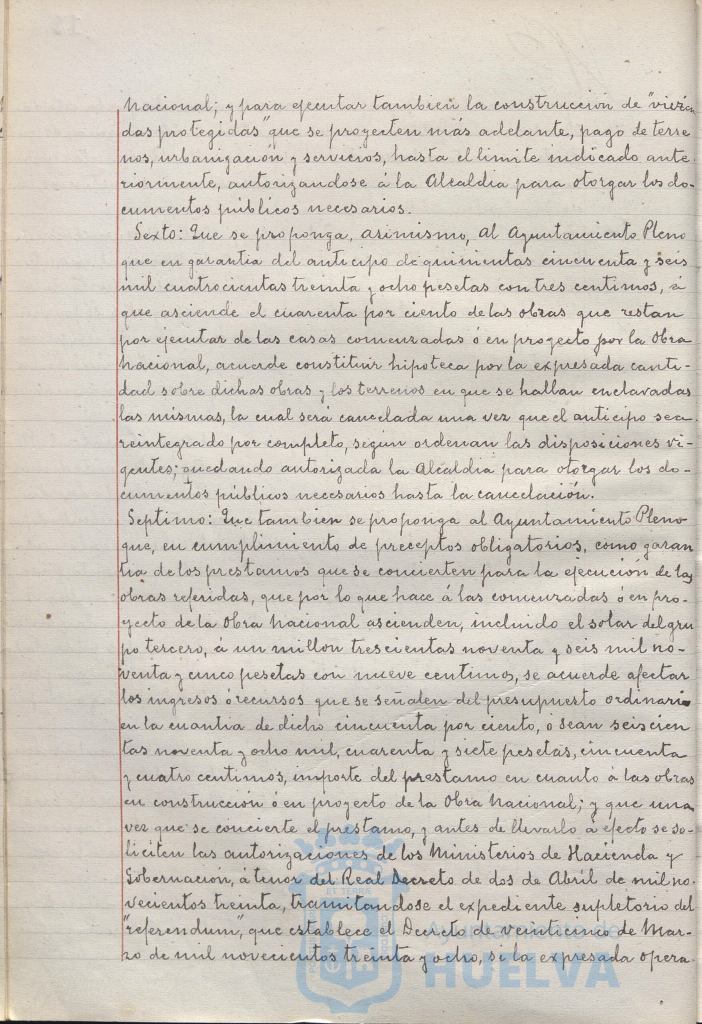 nacional; y para ejecutar tambien la construcción de "vivien
das protegidas" que se proyecten más adelante, pago de terre
nos, urbanización y servicios, hasta el limite indicado ante-
riormente, autorizandose á la Alcaldia para otorgar los do-
cumentos públicos necesarios.
Sexto: Que se proponga, asimismo, al Ayuntamiento Pleno
que en garantia del anticipo de quinientas cincuenta y seis
mil cuatrocientas treinta y ocho pesetas con tres centimos, á
que asciende el cuarenta por ciento de las obras que restan
por ejecutar de las casas comenzadas ó en proyecto por la Obra
nacional, acuerde constituir hipoteca por la expresada canti-
dad sobre dichas obras y los terrenos en que se hallan enclavadas
las mismas, la cual será cancelada una vez que el anticipo sea
reintegrado por completo, según ordenan las disposiciones vi-
gentes; quedando autorizada la Alcaldia para otorgar los do-
cumentos públicos necesarios hasta la cancelación.
Septimo: Que tambien se proponga al Ayuntamiento Pleno
que, en cumplimiento de preceptos obligatorios, como garan
tia de los prestamos que se concierten para la ejecución de las
obras referidas, que por lo que hace á las comenzadas ó en pro-
yecto de la Obra nacional ascienden, incluido el solar del gru
po tercero, á un millon trescientas noventa y seis mil no-
venta y cinco pesetas con nueve centimos, se acuerde afectar
los ingresos ó recursos que se señalen del presupuesto ordinario
en la cuantia de dicho cincuenta por ciento, ó sean seiscien
tas noventa y ocho mil, cuarenta y siete pesetas, cincuenta
y cuatro centimos, importe del prestamo en cuanto á las obras
en construcción ó en proyecto de la Obra nacional; y que una
vez que se concierte el prestamo, y antes de llevarlo á efecto se so-
liciten las autorizaciones de los Ministerios de Hacienda y
Gobernación, á tenor del Real Decreto de dos de Abril de mil no-
vecientos treinta, tramitandose el expediente supletorio del
"referendum", que establece el Decreto de veinticinco de Mar-
zo de mil novecientos treinta y ocho, si la expresada opera-
Ayuntamiento de
HUELVA